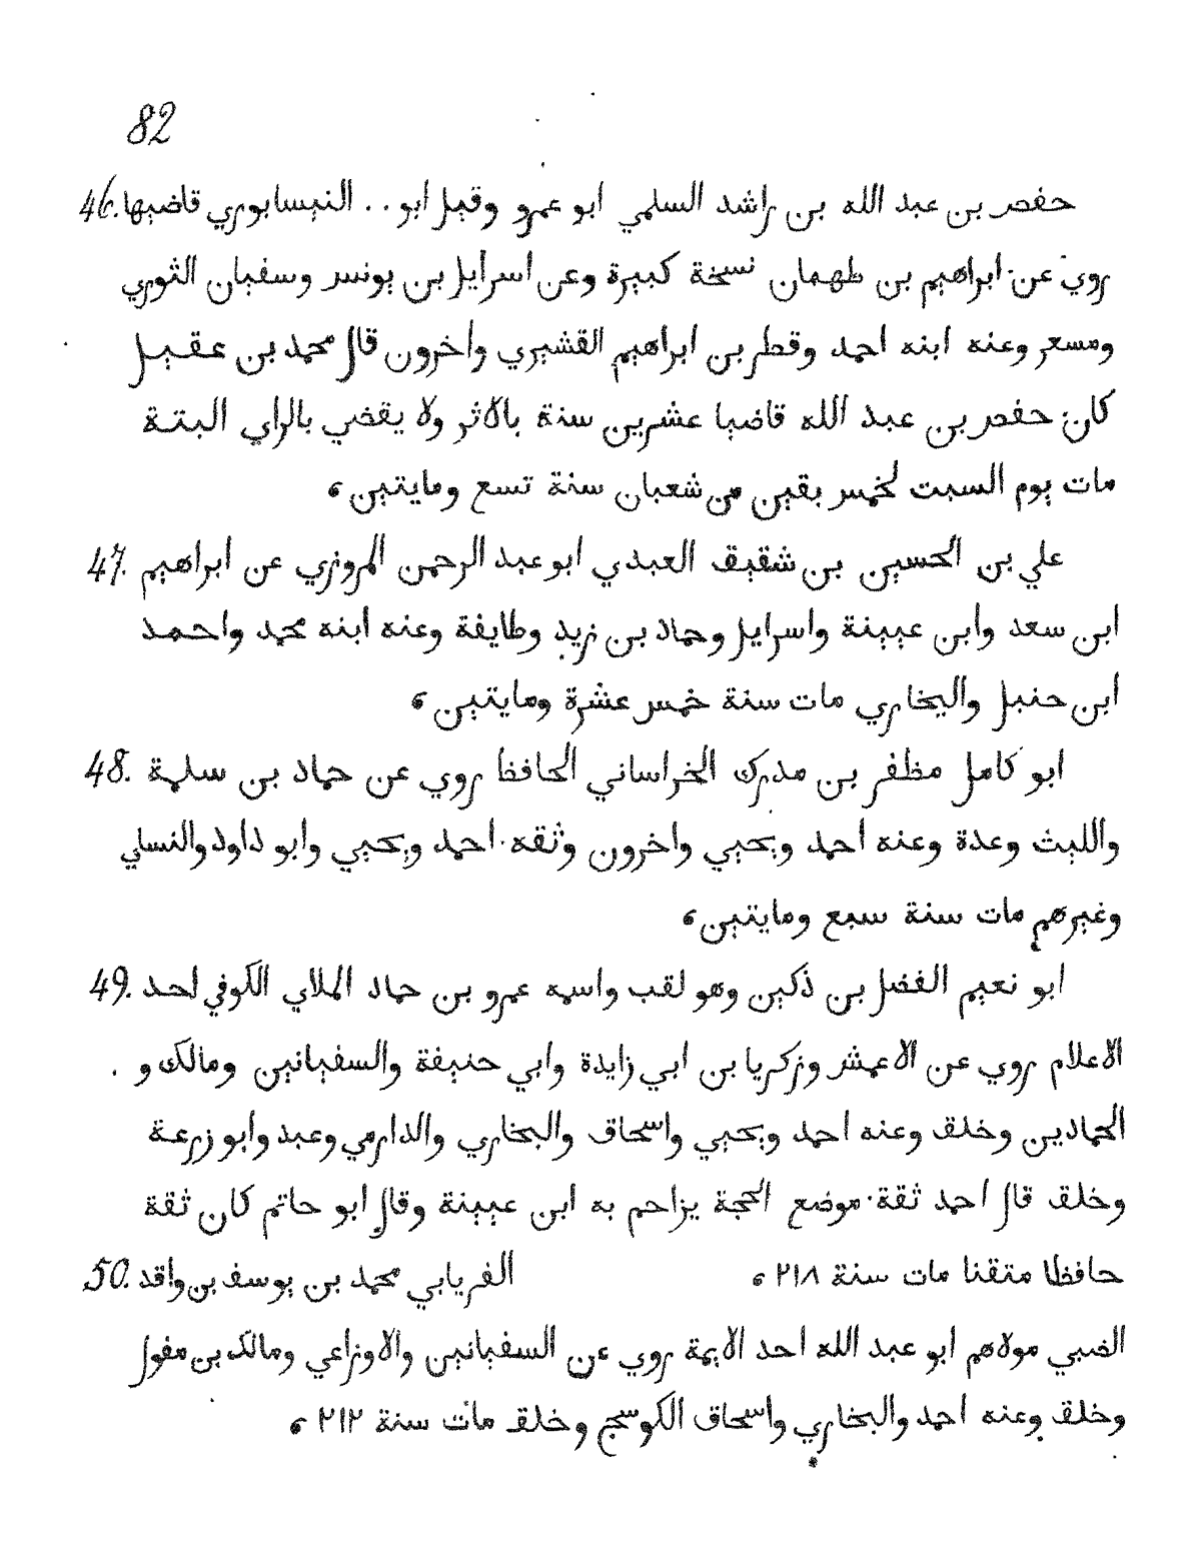 82
46. حفص بن عبد الله بن راشد السلمي ابو عمرو وقيل ابو .. النيسابوري قاضيها
روي عن ابراهيم بن طهمان نسخة كبيرة وعن اسرايل بن يونس وسفيان الثوري
ومسعر وعنه ابنه احمد وقطن بن ابراهيم القشيري واخرون قال محمد بن عقيل
كان حفص بن عبد الله قاضيا عشرين سنة بالاثر ولا يقضي بالراي البتة
مات يوم السبت لخمس بقين من شعبان سنة تسع ومايتين ،
47. علي بن الحسين بن شقيق العبدي ابو عبد الرحمن المروزي عن ابراهيم
ابن سعد وابن عيينة واسرايل وحماد بن زيد وطايفة وعنه ابنه محمد واحمد
ابن حنبل والبخاري مات سنة خمس عشرة ومايتين ،
48. ابو كامل مظفر بن مدرك الخراساني الحافظ روي عن حماد بن سلمة
والليث وعدة وعنه احمد ويحيي واخرون وثقه احمد ويحيي وابو داود والنساي
وغيرهم مات سنة سبع ومايتين ،
49. ابو نعيم الفضل بن ذكين وهو لقب واسمه عمرو بن حماد الملاي الكوفي احد
الاعلام روي عن الاعمش وزكريا بن ابي زايدة وابي حنيفة والسفيانين ومالك و
الحمادين وخلق وعنه احمد ويحيي واسحاق والبخاري والدارمي وعبد وابو زرعة
وخلق قال احمد ثقة موضع الحجة يزاحم به ابن عيينة وقال ابو حاتم كان ثقة
حافظا متقنا مات سنة ٢١٨ ، الفريابي محمد بن يوسف بن واقد 50.
الضبي مولاهم ابو عبد الله احد الايمة روي عن السفيانين والاوزاعي ومالك بن مغول
وخلق وعنه احمد والبخاري واسحاق الكوسج وخلق مات سنة ٢١٢ ،